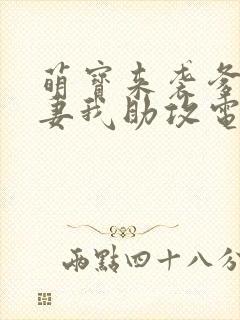 萌寶來袭爹
妻我助攻電
兩點四十八分